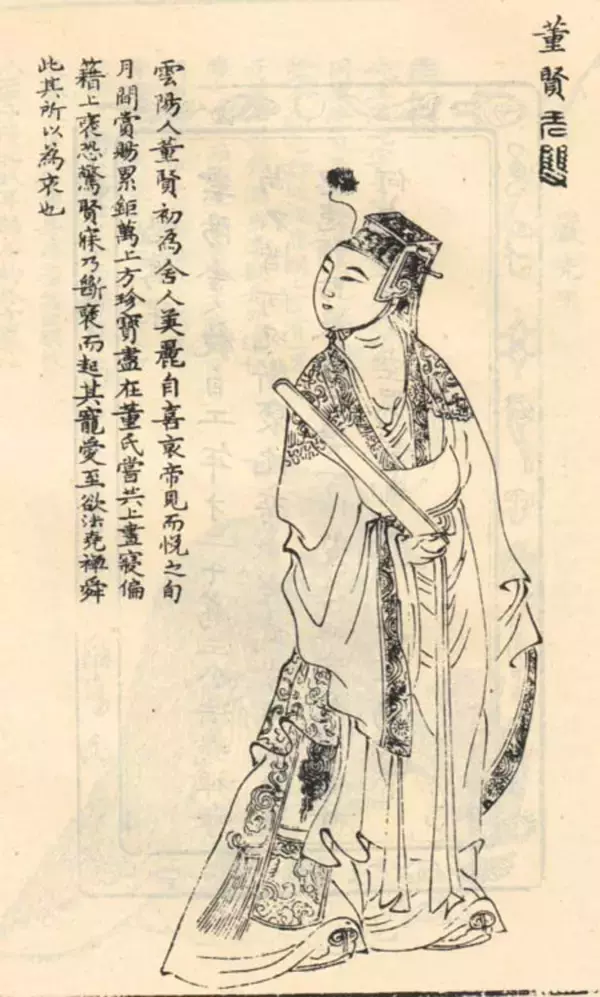 董賢无雙
雲陽人董賢初為舍人美麗自喜哀帝見而悅之旬
月間賞賜累鉅萬上方珍寶盡在董氏嘗共上晝寢偏
藉上褏恐驚賢寐乃斷褏而起其寵愛至欲法堯禪舜
此其所以為哀也